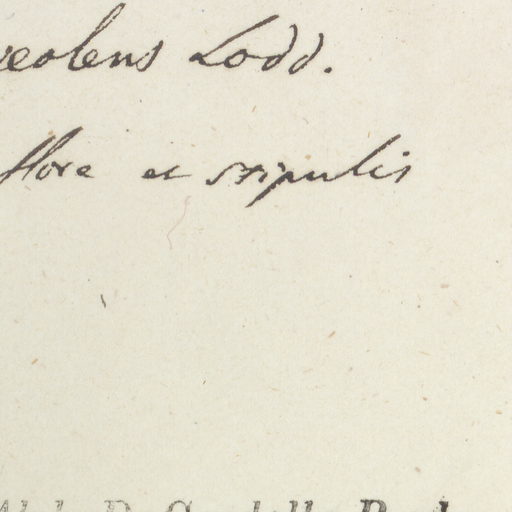 veolens Lodd.
flore et stipulis